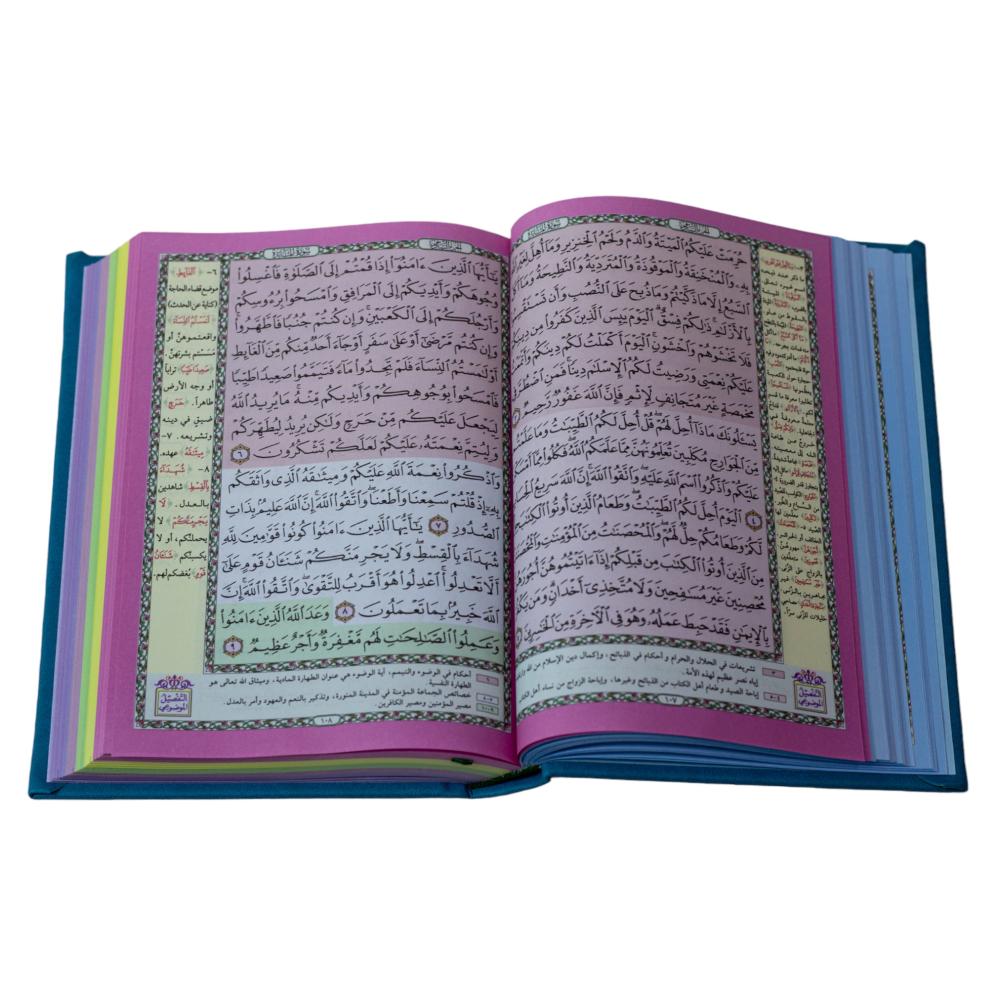 حُرِّمَتۡ عَلَيۡكُمُ ٱلۡمَيۡتَةُ وَٱلدَّمُ وَلَحۡمُ ٱلۡخِنزِيرِ وَمَآ أُهِلَّ لِغَيۡرِ
بِهِۦ وَٱلۡمُنۡخَنِقَةُ وَٱلۡمَوۡقُوذَةُ وَٱلۡمُتَرَدِّيَةُ وَٱلنَّطِيحَةُ وَمَآ أَكَلَ
ٱلسَّبُعُ إِلَّا مَا ذَكَّيۡتُمۡ وَمَا ذُبِحَ عَلَى ٱلنُّصُبِ وَأَن تَسۡتَقۡسِمُواْ
بِٱلۡأَزۡلَٰمِۚ ذَٰلِكُمۡ فِسۡقٌۗ ٱلۡيَوۡمَ يَئِسَ ٱلَّذِينَ كَفَرُواْ مِن دِينِكُمۡ
فَلَا تَخۡشَوۡهُمۡ وَٱخۡشَوۡنِۚ ٱلۡيَوۡمَ أَكۡمَلۡتُ لَكُمۡ دِينَكُمۡ وَأَتۡمَمۡتُ
عَلَيۡكُمۡ نِعۡمَتِي وَرَضِيتُ لَكُمُ ٱلۡإِسۡلَٰمَ دِينٗاۚ فَمَنِ ٱضۡطُرَّ فِي
مَخۡمَصَةٍ غَيۡرَ مُتَجَانِفٖ لِّإِثۡمٖ فَإِنَّ ٱللَّهَ غَفُورٞ رَّحِيمٞ ٣
يَسۡـَٔلُونَكَ مَاذَآ أُحِلَّ لَهُمۡۖ قُلۡ أُحِلَّ لَكُمُ ٱلطَّيِّبَٰتُ وَمَا عَلَّمۡتُم
مِّنَ ٱلۡجَوَارِحِ مُكَلِّبِينَ تُعَلِّمُونَهُنَّ مِمَّا عَلَّمَكُمُ ٱللَّهُۖ فَكُلُواْ مِمَّآ أَمۡسَكۡنَ
عَلَيۡكُمۡ وَٱذۡكُرُواْ ٱسۡمَ ٱللَّهِ عَلَيۡهِۖ وَٱتَّقُواْ ٱللَّهَۚ إِنَّ ٱللَّهَ سَرِيعُ ٱلۡحِسَابِ
٤ ٱلۡيَوۡمَ أُحِلَّ لَكُمُ ٱلطَّيِّبَٰتُۖ وَطَعَامُ ٱلَّذِينَ أُوتُواْ ٱلۡكِتَٰبَ
لَّكُمۡ وَطَعَامُكُمۡ حِلّٞ لَّهُمۡۖ وَٱلۡمُحۡصَنَٰتُ مِنَ ٱلۡمُؤۡمِنَٰتِ وَٱلۡمُحۡصَنَٰتُ
مِنَ ٱلَّذِينَ أُوتُواْ ٱلۡكِتَٰبَ مِن قَبۡلِكُمۡ إِذَآ ءَاتَيۡتُمُوهُنَّ أُجُورَهُنَّ
مُحۡصِنِينَ غَيۡرَ مُسَٰفِحِينَ وَلَا مُتَّخِذِيٓ أَخۡدَانٖۗ وَمَن يَكۡفُرۡ
بِٱلۡإِيمَٰنِ فَقَدۡ حَبِطَ عَمَلُهُۥ وَهُوَ فِي ٱلۡأٓخِرَةِ مِنَ ٱلۡخَٰسِرِينَ
٣ تشريعات في الحلال والحرام و أحكام في الذبائح، وإكمال دين الإسلام من الله
إياه نصر عظيم لهذه الأمة.
٤-٥ إباحة الصيد و طعام أهل الكتاب من الذبائح وغيرها، وإباحة الزواج من نساء أهل الكتاب
التفصيل
الموضوعي
١٠٧
يَٰٓأَيُّهَا ٱلَّذِينَ ءَامَنُوٓاْ إِذَا قُمۡتُمۡ إِلَى ٱلصَّلَوٰةِ فَٱغۡسِلُواْ
وُجُوهَكُمۡ وَأَيۡدِيَكُمۡ إِلَى ٱلۡمَرَافِقِ وَٱمۡسَحُواْ بِرُءُوسِكُمۡ
وَأَرۡجُلَكُمۡ إِلَى ٱلۡكَعۡبَيۡنِۚ وَإِن كُنتُمۡ جُنُبٗا فَٱطَّهَّرُواْۚ
وَإِن كُنتُم مَّرۡضَىٰٓ أَوۡ عَلَىٰ سَفَرٍ أَوۡ جَآءَ أَحَدٞ مِّنكُم مِّنَ ٱلۡغَآئِطِ
أَوۡ لَٰمَسۡتُمُ ٱلنِّسَآءَ فَلَمۡ تَجِدُواْ مَآءٗ فَتَيَمَّمُواْ صَعِيدٗا طَيِّبٗا
فَٱمۡسَحُواْ بِوُجُوهِكُمۡ وَأَيۡدِيكُم مِّنۡهُۚ مَا يُرِيدُ ٱللَّهُ
لِيَجۡعَلَ عَلَيۡكُم مِّنۡ حَرَجٖ وَلَٰكِن يُرِيدُ لِيُطَهِّرَكُمۡ
وَلِيُتِمَّ نِعۡمَتَهُۥ عَلَيۡكُمۡ لَعَلَّكُمۡ تَشۡكُرُونَ ٦
وَٱذۡكُرُواْ نِعۡمَةَ ٱللَّهِ عَلَيۡكُمۡ وَمِيثَٰقَهُ ٱلَّذِي وَاثَقَكُم
بِهِۦٓ إِذۡ قُلۡتُمۡ سَمِعۡنَا وَأَطَعۡنَاۖ وَٱتَّقُواْ ٱللَّهَۚ إِنَّ ٱللَّهَ عَلِيمُۢ بِذَاتِ
ٱلصُّدُورِ ٧ يَٰٓأَيُّهَا ٱلَّذِينَ ءَامَنُواْ كُونُواْ قَوَّٰمِينَ لِلَّهِ
شُهَدَآءَ بِٱلۡقِسۡطِۖ وَلَا يَجۡرِمَنَّكُمۡ شَنَـَٔانُ قَوۡمٍ عَلَىٰٓ
أَلَّا تَعۡدِلُواْۚ ٱعۡدِلُواْ هُوَ أَقۡرَبُ لِلتَّقۡوَىٰۖ وَٱتَّقُواْ ٱللَّهَۚ إِنَّ
ٱللَّهَ خَبِيرُۢ بِمَا تَعۡمَلُونَ ٨ وَعَدَ ٱللَّهُ ٱلَّذِينَ ءَامَنُواْ
وَعَمِلُواْ ٱلصَّٰلِحَٰتِ لَهُم مَّغۡفِرَةٞ وَأَجۡرٌ عَظِيمٞ ٩
٦- ﴿ٱلۡغَآئِطِ﴾
موضع قضاء الحاجة
(كناية عن الحدث)
﴿لَٰمَسۡتُمُ ٱلنِّسَآءَ﴾
واقعتموهنّ أو
مَسَستم بشرتهنّ.
﴿صَعِيدٗا طَيِّبٗا﴾ تراباً
أو وجه الأرض
طاهراً. ﴿حَرَجٖ﴾
ضيق في دينه
وتشريعه. ٧-
﴿مِيثَٰقَهُ﴾ عهده.
٨- ﴿شُهَدَآءَ
بِٱلۡقِسۡطِ﴾ شاهدين
بالعدل. ﴿لَا
يَجۡرِمَنَّكُمۡ﴾ لا
يحملنّكم، أو لا
يكسبنّكم ﴿شَنَـَٔانُ
قَوۡمٍ﴾ بُغضكم لهم.
٦ أحكام في الوضوء والتيمم، آية الوضوء هي عنوان الطهارة المادية، وميثاق الله تعالى هو
الطهارة النفسية
٧-٨ خصائص الجماعة المؤمنة في المدينة المنورة، وتذكير بالنعم والعهود وأمر بالعدل.
٩-١٠ مصير المؤمنين و مصير الكافرين.
التفصيل
الموضوعي
١٠٨